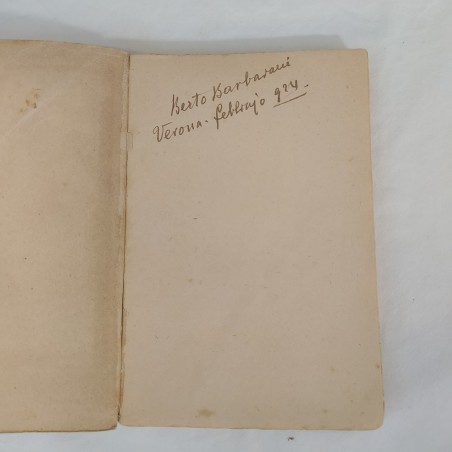 Berto Barbarani
Verona. febbrajo 924.